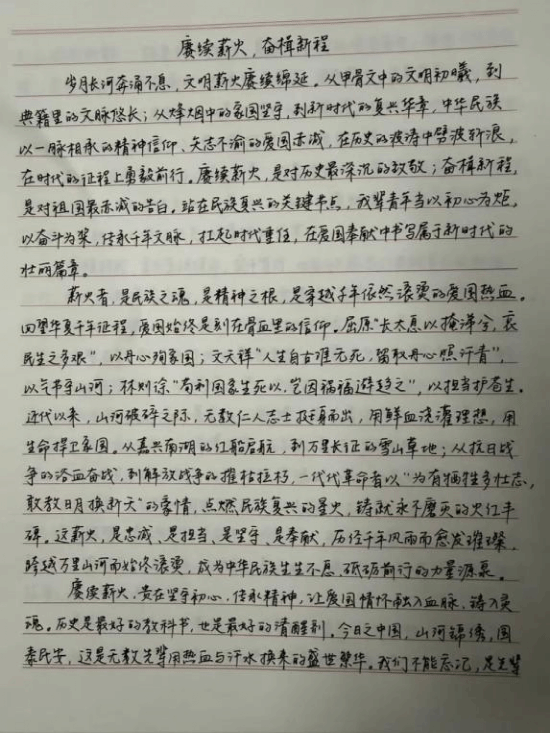 赓续薪火，奋楫新程
岁月长河奔涌不息，文明薪火赓续绵延。从甲骨文中的文明初曦，到
典籍里的文脉悠长；从烽烟中的家国坚守，到新时代的复兴华章，中华民族
以一脉相承的精神信仰、矢志不渝的爱国赤诚，在历史的波涛中劈波斩浪，
在时代的征程上勇毅前行。赓续薪火，是对历史最深沉的致敬；奋楫新程，
是对祖国最赤诚的告白。站在民族复兴的关键节点，我辈青年当以初心为炬，
以奋斗为桨，传承千年文脉，扛起时代重任，在爱国奉献中书写属于新时代的
壮丽篇章。
薪火者，是民族之魂，是精神之根，是穿越千年依然滚烫的爱国热血。
回望华夏千年征程，爱国始终是刻在骨血里的信仰。屈原“长太息以掩涕兮，哀
民生之多艰”，以丹心殉家国；文天祥“人生自古谁无死，留取丹心照汗青”，
以气节守山河；林则徐“苟利国家生死以，岂因祸福避趋之”，以担当护苍生。
近代以来，山河破碎之际，无数仁人志士挺身而出，用鲜血浇灌理想，用
生命捍卫家国。从嘉兴南湖的红船启航，到万里长征的雪山草地；从抗日战
争的浴血奋战，到解放战争的摧枯拉朽，一代代革命者以“为有牺牲多壮志，
敢教日月换新天”的豪情，点燃民族复兴的星火，铸就永不磨灭的火红丰
碑。这薪火，是忠诚、是担当、是坚守、是奉献，历经千年风雨而愈发璀璨，
跨越万里山河而始终滚烫，成为中华民族生生不息、砥砺前行的力量源泉。
赓续薪火，贵在坚守初心、传承精神，让爱国情怀融入血脉、铸入灵
魂。历史是最好的教科书，也是最好的清醒剂。今日之中国，山河锦绣，国
泰民安，这是无数先辈用热血与汗水换来的盛世繁华。我们不能忘记，是先辈